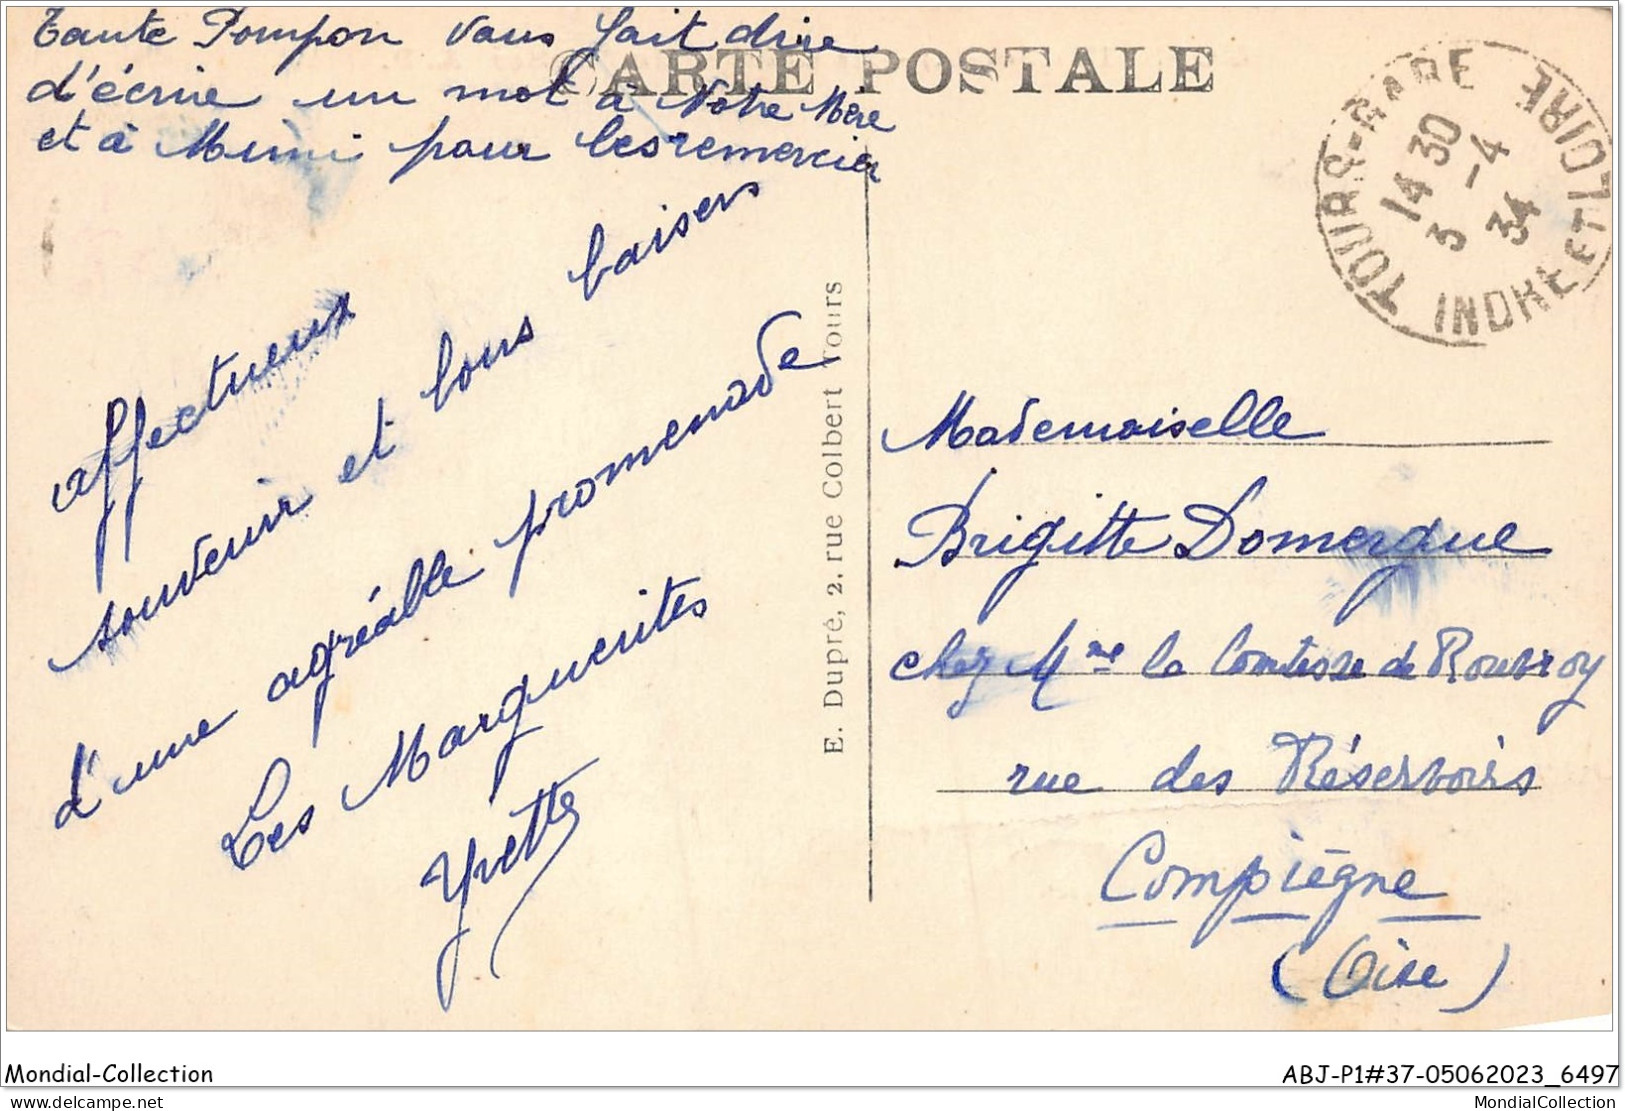 Tante Pompon vous fait dire
d'écrire un mot à Notre Mère
et à Mimi pour les remercier
CARTE POSTALE
TOURS-GARE
INDRE ET LOIRE
14 30
3 -4
34
affectueux
souvenir et bons baisers
d'une agréable promenade
Les Marguerites
Yvette
E. Dupré, 2, rue Colbert Tours
Mademoiselle
Brigitte Domergue
chez Mme la Comtesse de Rouvroy
rue des Réservoirs
Compiègne
(Oise)
Mondial-Collection
ABJ-P1#37-05062023_6497
delcampe.net
MondialCollection